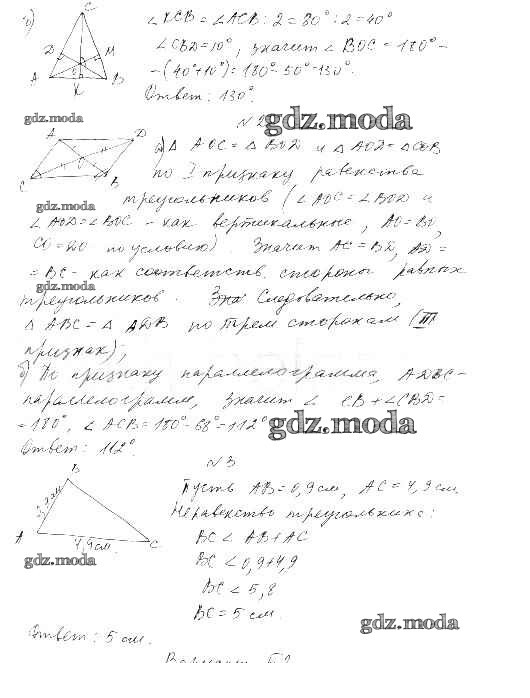 б)
∠KCB = ∠ACB : 2 = 80° : 2 = 40°
∠CBD = 10°, значит ∠BOC = 180° -
- (40° + 10°) = 180° - 50° = 130°.
Ответ: 130°.
C
D
M
A
K
B
gdz.moda
N 2
gdz.moda
A
D
O
C
B
а) △ AOC = △ BOD и △ AOD = △ COB
по I признаку равенства
треугольников (∠AOC = ∠BOD и
gdz.moda
∠AOD = ∠BOC - как вертикальные, AO = BO,
CO = DO по условию). Значит AC = BD, AD =
= BC - как соответств. стороны равных
gdz.moda
треугольников. Следовательно,
△ ABC = △ ADB по трем сторонам (III
признак);
б) По признаку параллелограмма, ADBC -
параллелограмм, значит ∠ CB + ∠CBD =
= 180°, ∠ACB = 180° - 68° = 112°
gdz.moda
Ответ: 112°.
N 3
B
A
C
4,9 см.
Пусть AB = 0,9 см, AC = 4,9 см.
Неравенство треугольника:
BC < AB + AC
BC < 0,9 + 4,9
BC < 5,8
BC = 5 см.
gdz.moda
gdz.moda
Ответ: 5 см.